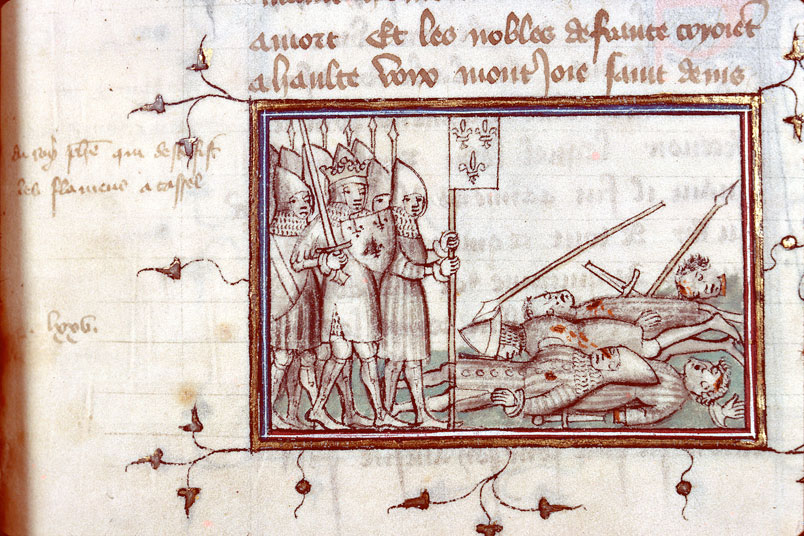 amort Et les nobles de france crioient
a haulte voix mont Joie saint denis
du roy phē qui desconfist
les flamens a cassel
lxxv.